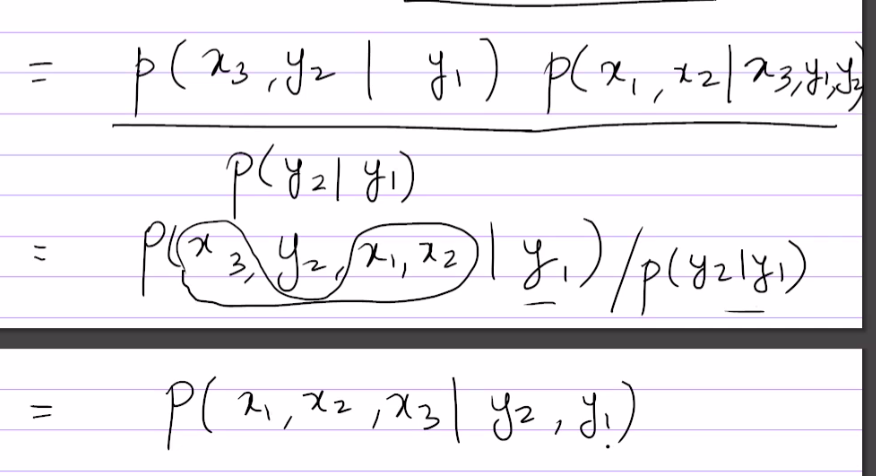 = p(x₃, y₂ | y₁) p(x₁, x₂ | x₃, y₁, y₂)
p(y₂ | y₁)
= p(x₃, y₂, x₁, x₂ | y₁) / p(y₂ | y₁)
= p(x₁, x₂, x₃ | y₂, y₁)